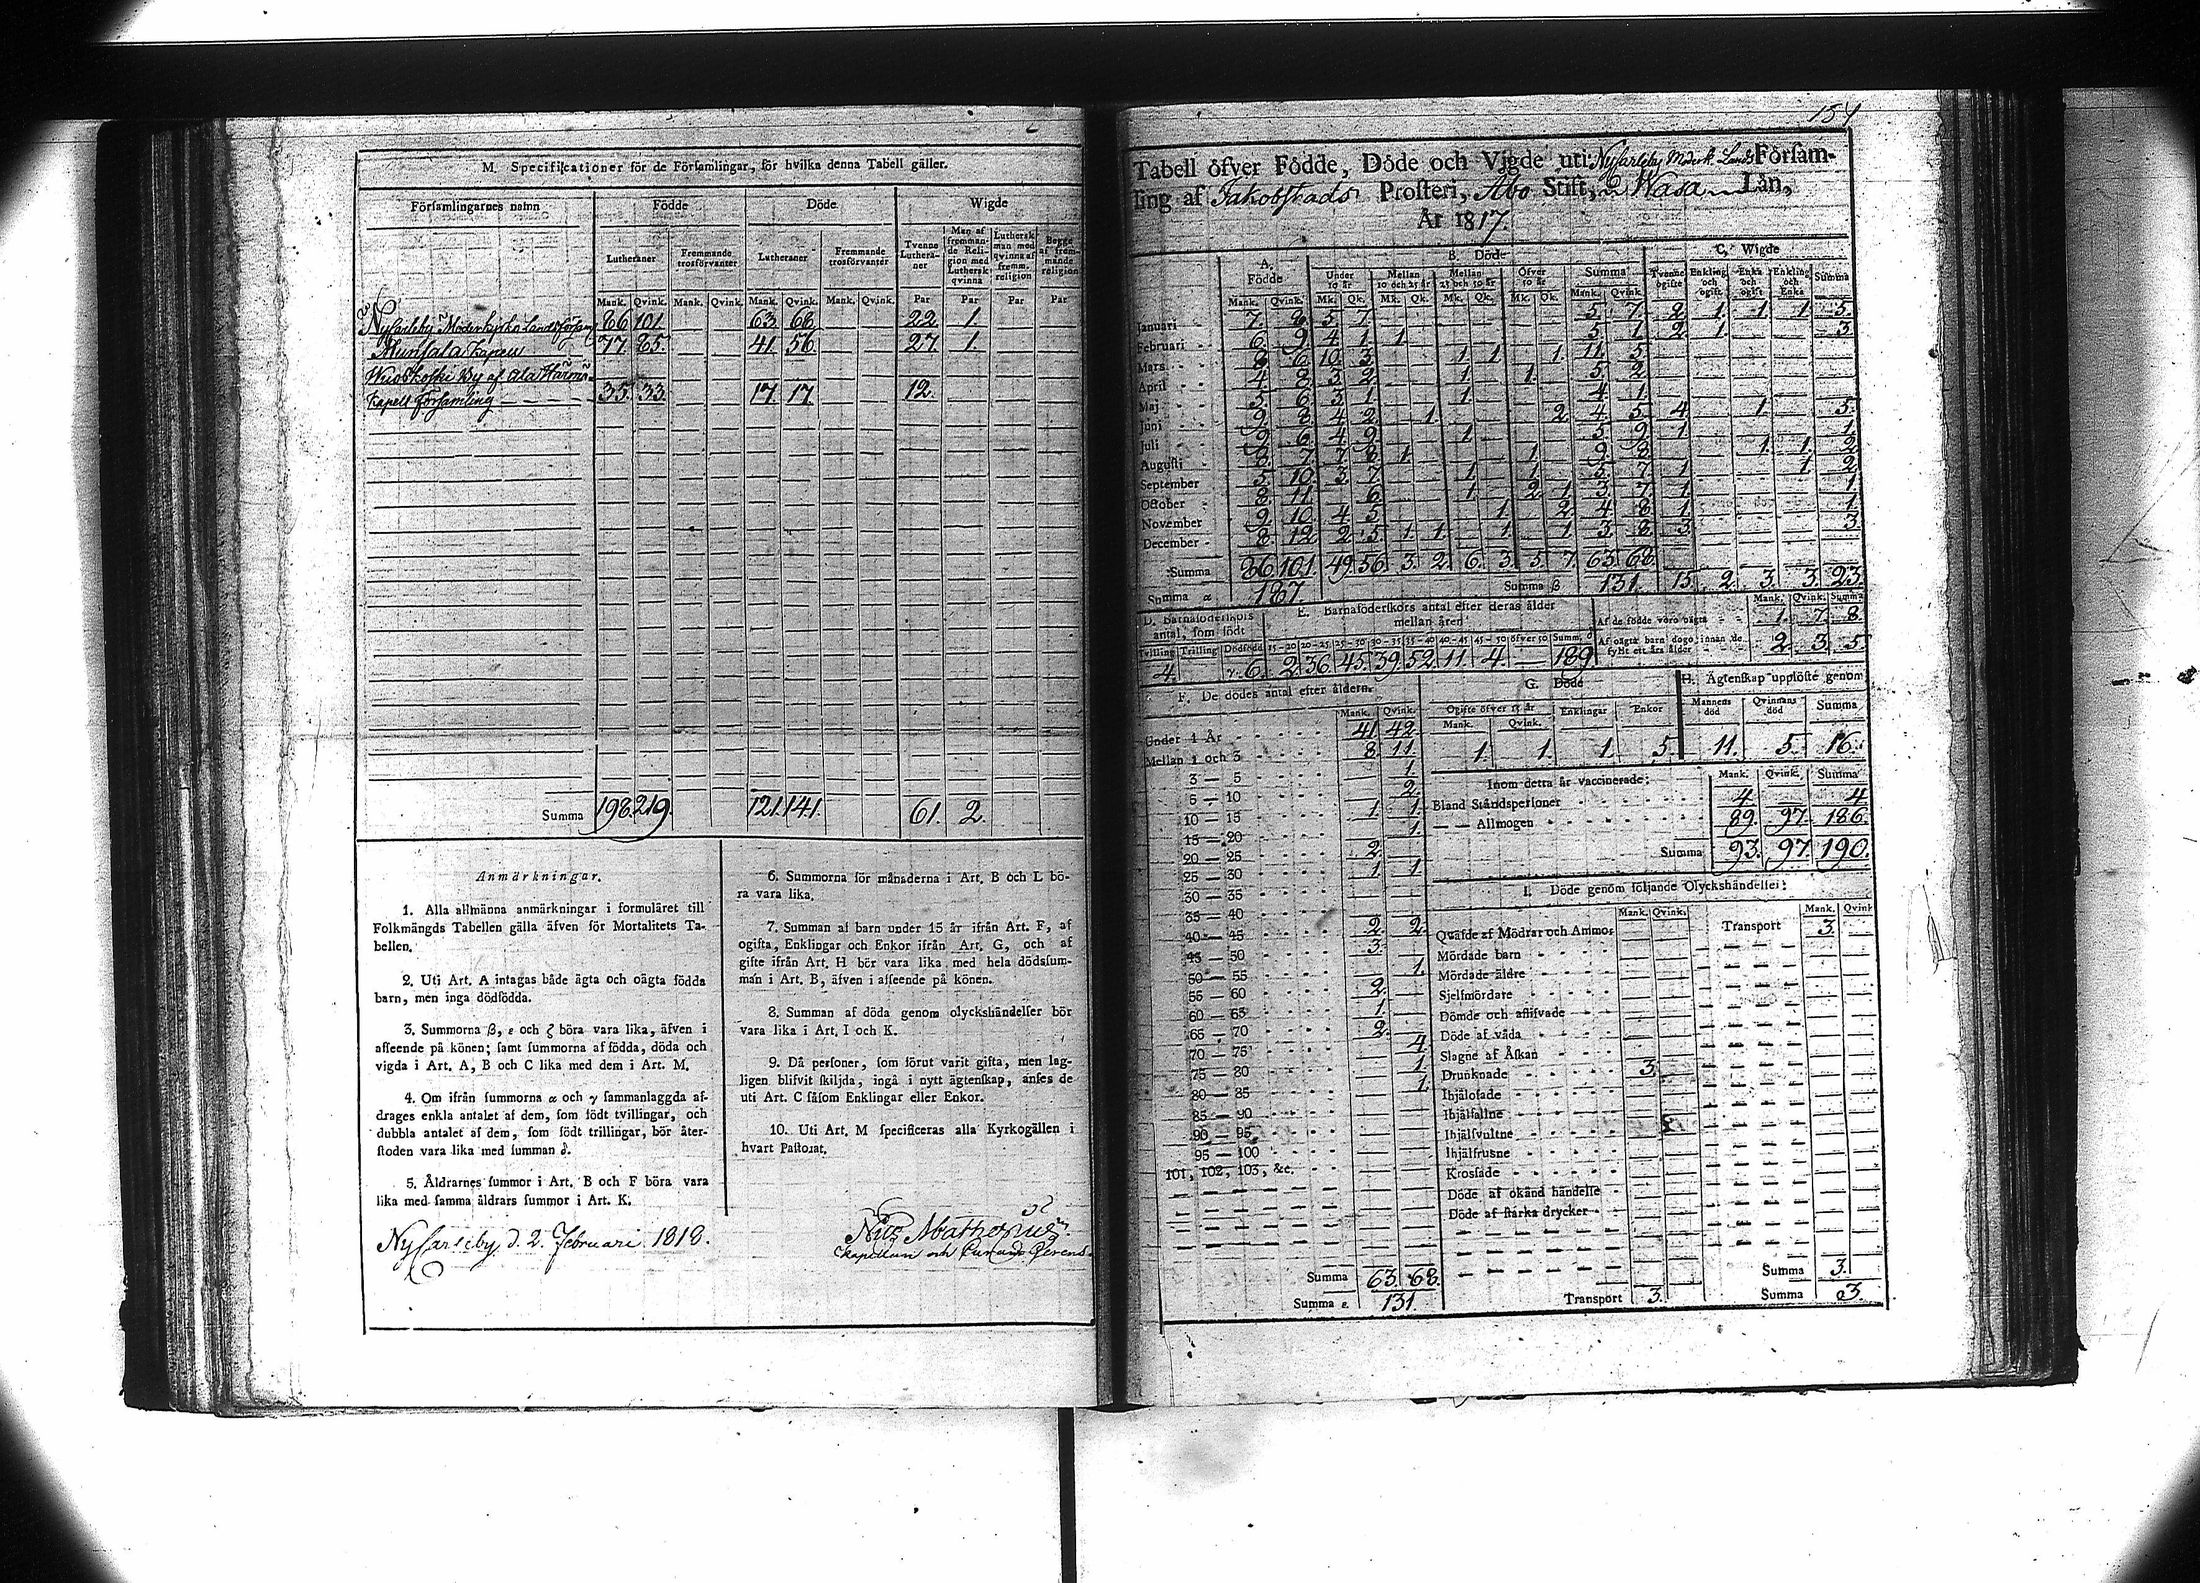 M. Specificationer för de Församlingar, för hvilka denna Tabell gäller.
Församlingarnes namn Födde Döde Wigde
Lutheraner Fremmande trosförvanter Lutheraner Fremmande trosförvanter Tvenne Lutheraner Man af fremmande Religion med Luthersk qvinna Luthersk man med qvinna af fremm. religion Begge af fremmande religion
Mank. Qvink. Mank. Qvink. Mank. Qvink. Mank. Qvink. Par Par Par Par
NyCarleby Moderkyrko Landsförsam 86 101. 63. 68. 22. 1.
Munsala Capell 77. 85. 41. 56. 27. 1.
Kapell Församling 35. 33. 17. 17. 12.
Summa 198. 219. 121. 141. 61. 2.
Anmärkningar.
1. Alla allmänna anmärkningar i formuläret till
Folkmängds Tabellen gälla äfven för Mortalitets Ta-
bellen.
2. Uti Art. A intagas både ägta och oägta födda
barn, men inga dödfödda.
3. Summorna ß, ε och ζ böra vara lika, äfven i
afseende på könen; samt summorna af födda, döda och
vigda i Art. A, B och C lika med dem i Art. M.
4. Om ifrån summorna α och γ sammanlaggda af-
drages enkla antalet af dem, som födt tvillingar, och
dubbla antalet af dem, som födt trillingar, bör åter-
stoden vara lika med summan δ.
5. Åldrarnes summor i Art. B och F böra vara
lika med samma åldrars summor i Art. K.
NyCarleby d. 2. Februari 1818.
6. Summorna för månaderna i Art. B och L bö-
ra vara lika.
7. Summan af barn under 15 år ifrån Art. F, af
ogifta, Enklingar och Enkor ifrån Art. G, och af
gifte ifrån Art. H bör vara lika med hela dödssum-
man i Art. B, äfven i afseende på könen.
8. Summan af döda genom olyckshändelser bör
vara lika i Art. I och K.
9. Då personer, som förut varit gifta, men lag-
ligen blifvit skiljda, ingå i nytt ägtenskap, anses de
uti Art. C såsom Enklingar eller Enkor.
10. Uti Art. M specificeras alla Kyrkogällen i
hvart Pastorat.
Nils
154
Tabell öfver Födde, Döde och Vigde uti NyCarleby Moderk. Lands Försam-
ling af Jakobstads Prosteri, Åbo Stift, Wasa Län,
År 1817.
A. Födde B. Döde C. Wigde
Under 10 år Mellan 10 och 25 år Mellan 25 och 50 år Öfver 50 år Summa Tvenne ogifte Enkling och ogift Enka och ogift Enkling och Enka Summa
Mank. Qvink. Mk. Qk. Mk. Qk. Mk. Qk. Mk. Qk. Mank. Qvink.
Januari 7. 8. 5. 7. 5. 7. 2. 1. 1. 1. 5.
Februari 6. 9. 4. 1. 1. 5. 1. 2. 1. 3.
Mars 8. 6. 10. 3. 1. 1. 1. 11. 5.
April 4. 8. 3. 2. 1. 1. 5. 2.
Maj 5. 6. 3. 1. 1. 4. 1.
Juni 9. 3. 4. 2. 1. 2. 4. 5. 4. 1. 5.
Juli 9. 6. 4. 9. 1. 5. 9. 1. 1.
Augusti 8. 7. 7. 8. 1. 1. 9. 8. 1. 1. 2.
September 5. 10. 3. 7. 1. 1. 5. 7. 1. 1. 2.
October 8. 11. 6. 1. 2. 1. 3. 7. 1. 1.
November 9. 10. 4. 5. 1. 2. 4. 8. 1. 1.
December 8. 12. 2. 5. 1. 1. 1. 1. 3. 8. 3. 3.
Summa 86 101. 49. 56. 3. 2. 6. 3. 5. 7. 63. 68.
Summa α 187. Summa ß 131. 15. 2. 3. 3. 23.
D. Barnaföderskors antal, som födt
Tvilling Trilling Dödfödd
4. γ. 6.
E. Barnaföderskors antal efter deras ålder
mellan åren
15-20 20-25 25-30 30-35 35-40 40-45 45-50 öfver 50 Summ. δ
2. 36. 45. 39. 52. 11. 4. 189
Mank. Qvink. Summa
Af de födde voro oägta 1. 7. 8.
Af oägta barn dogo innan de fyllt ett års ålder 2. 3. 5
F. De dödes antal efter åldern.
Mank. Qvink.
Under 1 År 41. 42.
Mellan 1 och 3 8. 11.
3 — 5 1.
5 — 10 2.
10 — 15 1. 1.
15 — 20 1.
20 — 25 2.
25 — 30 1. 1
30 — 35
35 — 40
40 — 45 2. 2.
45 — 50 3.
50 — 55 1.
55 — 60 2.
60 — 65 1.
65 — 70 2.
70 — 75 4.
75 — 80 1.
80 — 85 1.
85 — 90
90 — 95
95 — 100
101, 102, 103, &c.
Summa 63. 68.
Summa ε. 131.
G. Döde
Ogifte öfver 15 år Enklingar Enkor
Mank. Qvink.
1. 1. 1. 5.
H. Ägtenskap upplöste genom
Mannens död Qvinnans död Summa
11. 5. 16.
Inom detta år vaccinerade: Mank. Qvink. Summa
Bland Ståndspersoner 4. 4
— — Allmogen 89. 97. 186.
Summa 93. 97. 190.
I. Döde genom följande Olyckshändelser:
Mank. Qvink. Mank. Qvink
Qväfde af Mödrar och Ammor Transport 3.
Mördade barn
Mördade äldre
Sjelfmördare
Dömde och aflifvade
Döde af våda
Slagne af Åskan
Drunknade 3.
Ihjälosade
Ihjälfallne
Ihjälsvultne
Ihjälfrusne
Krossade
Döde af okänd händelse
Döde af starka drycker
Summa 3.
Transport 3. Summa 3.